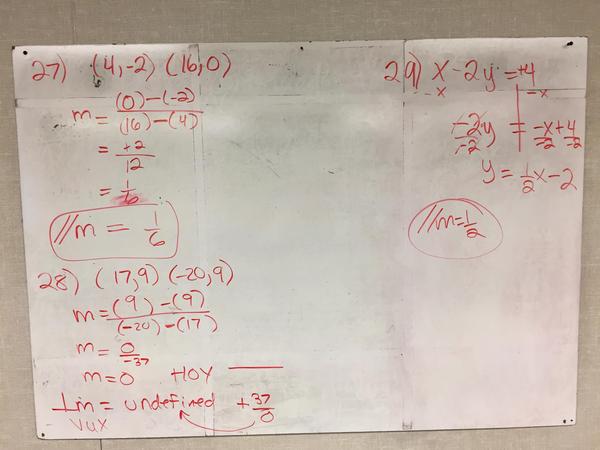 27) (4,-2) (16,0)
m = (0)-(-2) / (16)-(4)
= +2 / 12
= 1/6
//m = 1/6
28) (17,9) (-20,9)
m = (9)-(9) / (-20)-(17)
m = 0 / -37
m = 0 HOY
⊥m = undefined +37/0
VUX
29) x - 2y = +4
-x -x
-2y / -2 = -x / -2 + 4 / -2
y = 1/2 x - 2
//m = 1/2